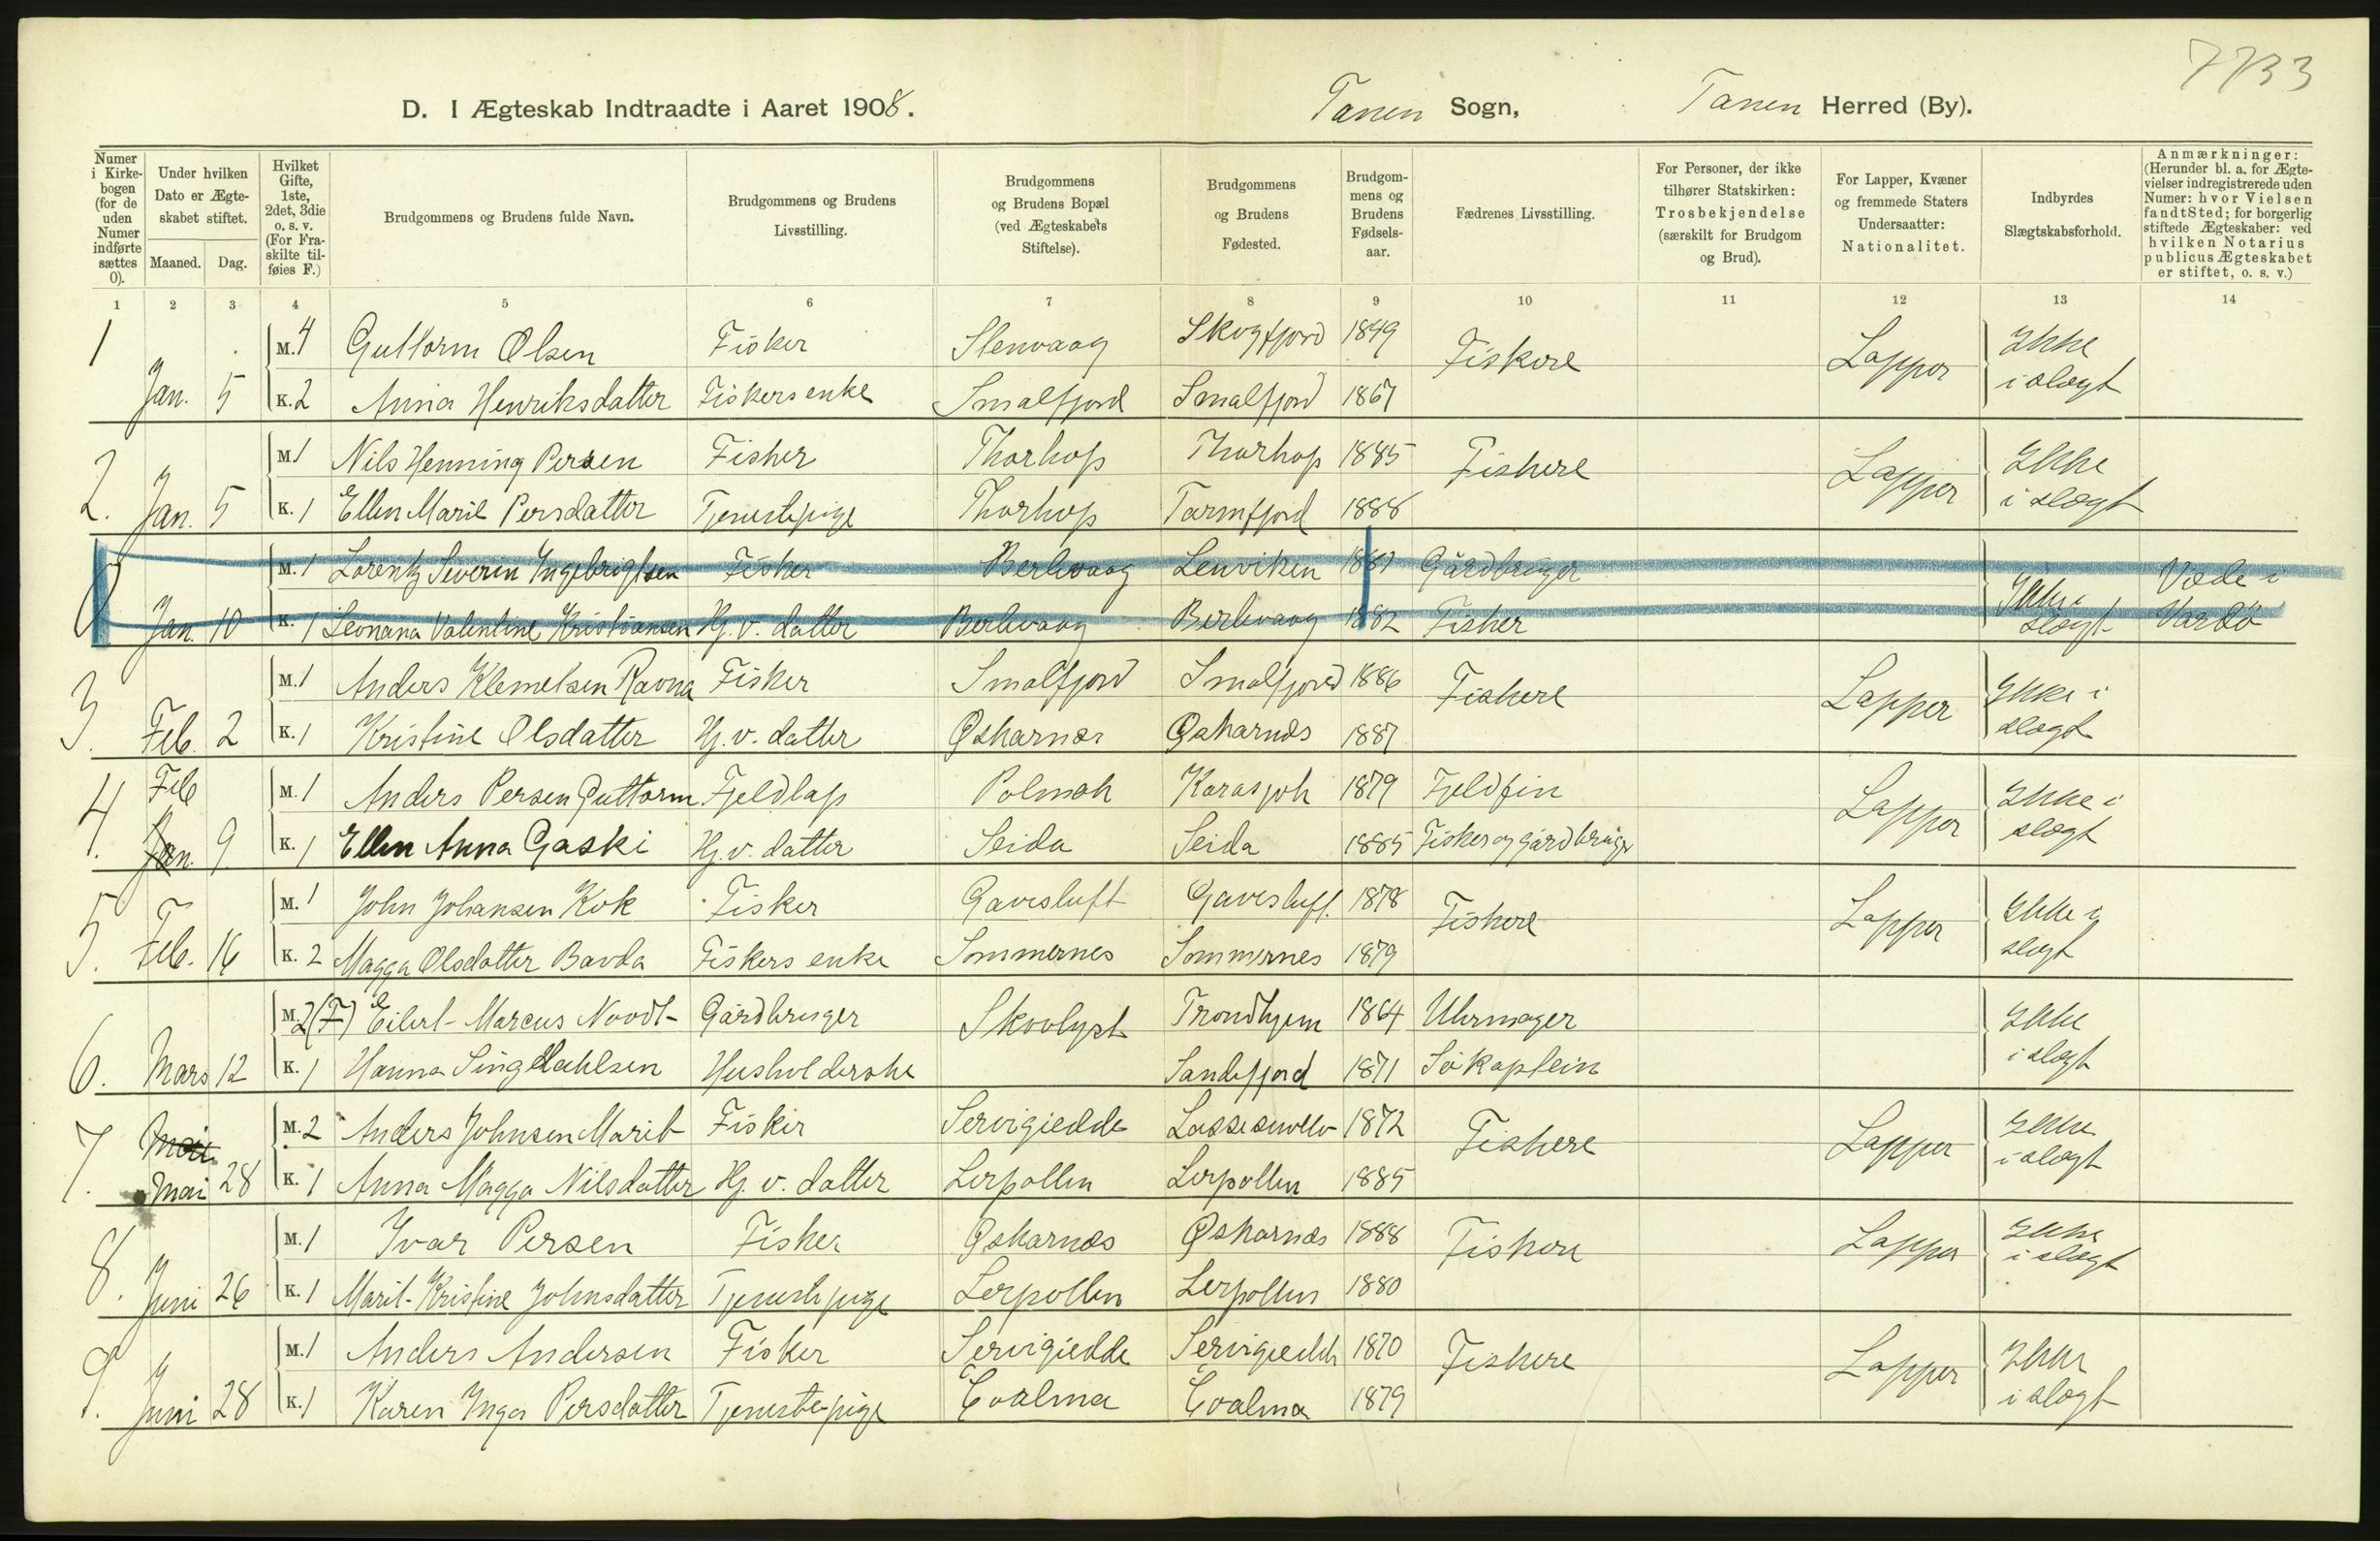 7733
D. I Ægteskab Indtraadte i Aaret 1908. Tanen Sogn, Tanen Herred (By).
Numer i Kirkebogen (for de uden Numer indførte sættes 0). Under hvilken Dato er Ægteskabet stiftet. Maaned. Dag. Hvilket Gifte, 1ste, 2det, 3die o. s. v. (For Fraskilte tilføies F.) Brudgommens og Brudens fulde Navn. Brudgommens og Brudens Livsstilling. Brudgommens og Brudens Bopæl (ved Ægteskabets Stiftelse). Brudgommens og Brudens Fødested. Brudgommens og Brudens Fødselsaar. Fædrenes Livsstilling. For Personer, der ikke tilhører Statskirken: Trosbekjendelse (særskilt for Brudgom og Brud). For Lapper, Kvæner og fremmede Staters Undersaatter: Nationalitet. Indbyrdes Slægtskabsforhold. Anmærkninger: (Herunder bl. a. for Ægtevielser indregistrerede uden Numer: hvor Vielsen fandt Sted; for borgerlig stiftede Ægteskaber: ved hvilken Notarius publicus Ægteskabet er stiftet, o. s. v.)
1 2 3 4 5 6 7 8 9 10 11 12 13 14
1 M. 4 Guttorm Olsen Fisker Stenvaag Skogfjord 1849 Fiskere Lapper Ikke
Jan. 5 K. 2 Anna Henriksdatter Fiskers enke Smalfjord Smalfjord 1867 i slægt
2. M. 1 Nils Henning Persen Fisker Thorhop Thorhop 1885 Fiskere Lapper Ikke
Jan. 5 K. 1 Ellen Marie Persdatter Tjenestepige Thorhop Tarmfjord 1888 i slægt
0 M. 1 Lorentz Severin Ingebrigtsen Fisker Berlevaag Lenviken 1881 Gårdbruger Ikke i Viede i
Jan. 10 K. 1 Leonana Valentine Kristiansen Hj. v. datter Berlevaag Berlevaag 1882 Fisker slægt Vardö
3. M. 1 Anders Klemetsen Ravna Fisker Smalfjord Smalfjord 1886 Fiskere Lapper Ikke i
Feb. 2 K. 1 Kristine Olsdatter Hj. v. datter Øskarnæs Øskarnæs 1887 slægt
4. Feb M. 1 Anders Persen Guttorm Fjeldlap Polmak Karasjok 1879 Fjeldfin Lapper Ikke i
Jan. 9 K. 1 Ellen Anna Gaski Hj. v. datter Seida Seida 1885 Fisker og gårdbruger slægt
5. M. 1 John Johansen Kok Fisker Gavesluft Gavesluft 1878 Fiskere Lapper Ikke i
Feb. 16 K. 2 Magga Olsdatter Bavda Fiskers enke Sommernes Sommernes 1879 slægt
6. M. 2(F) Eilert Marcus Noodt Gårdbruger Skovlyst Trondhjem 1864 Uhrmager Ikke
Mars 12 K. 1 Hanna Sing Dahlsen Husholderske Sandefjord 1871 Sökaptein i slægt
7. Mai M. 2 Anders Johnsen Marit Fisker Servigiedde 1872 Fiskere Lapper Ikke
Mai 28 K. 1 Anna Magga Nilsdatter Hj. v. datter Lerpollen Lerpollen 1885 i slægt
8. M. 1 Ivar Persen Fisker Øskarnæs Øskarnæs 1888 Fiskere Lapper Ikke
Juni 26 K. 1 Marit Kristine Johnsdatter Tjenestepige Lerpollen Lerpollen 1880 i slægt
9. M. 1 Anders Andersen Fisker Servigiedde Servigiedde 1870 Fiskere Lapper Ikke
Juni 28 K. 1 Karen Inga Persdatter Tjenestepige Coalma Coalma 1879 i slægt